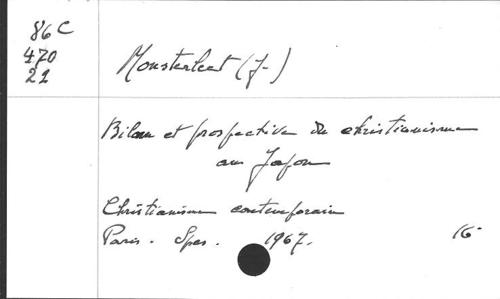 86 C
470
22
Monsterleet (J-)
Bilan et prospective du christianisme
au Japon
Christianisme contemporain
Paris. Spes. 1967. 16-